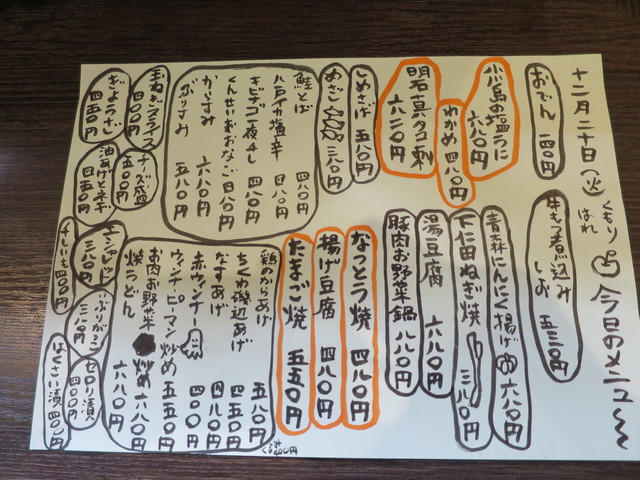 十二月二十日(火)
くもり
はれ
今日のメニュー
おでん 一四〇円
牛もつ煮込み
しお 五三〇円
小川島の塩うに 六八〇円
わかめ 四八〇円
明石真タコ刺 六二〇円
しめさば 五八〇円
めざし 三八〇円
青森にんにく揚げ 六八〇円
下仁田ねぎ焼 三八〇円
湯豆腐 六八〇円
豚肉お野菜鍋 八八〇円
なっとう焼 四八〇円
揚げ豆腐 四八〇円
たまご焼 五五〇円
鮭とば 四八〇円
ハタイカ塩辛 四八〇円
キビナゴ一夜干し 四八〇円
くんせいあおなご 四八〇円
からすみ 六八〇円
ぶりすみ 五八〇円
玉ねぎスライス 四〇〇円
ぎょうざ 四五〇円
チーズ盛 五〇〇円
油あげとネギ 四五〇円
鶏のからあげ 五八〇円
ちくわ磯辺あげ 四五〇円
なすあげ 四八〇円
赤ウインナー 四〇〇円
ウィンナーピーマン炒め 五五〇円
お肉お野菜炒め 六八〇円
焼うどん 六八〇円
エシャレット 三八〇円
いぶりがっこ 三八〇円
セロリ漬 四〇〇円
はくさい漬 四〇〇円